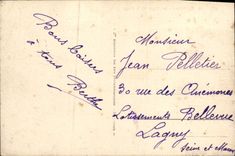 Bons baisers
à tous
Berthe
Monsieur
Jean Pelletier
30 rue des Anémones
Lotissements Bellevue
Lagny
Seine et Marne